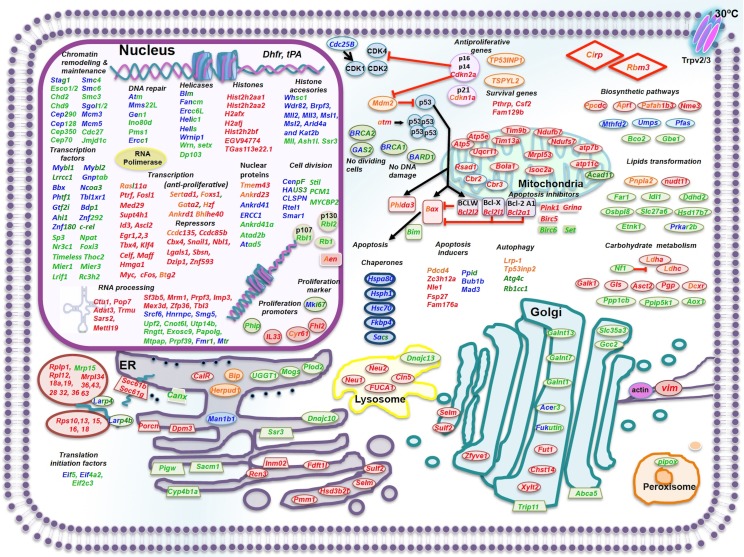 30ºC
Trpv2/3
Nucleus
Dhfr, tPA
Chromatin
remodeling &
maintenance
Stag1 Smc4
Esco1/2 Smc6
Chd2 Smc3
Chd9 Sgol1/2
Cep290 Mcm3
Cep190 Mcm8
Cep350 Cdc27
Cep70 Jmjd1c
Transcription
factors
Mybl1 Mybl2
Lrrcc1 Gnptab
Bbx Ncoa3
Phtf2 Tbl1x1
Gtf2i Bdp1
Ahi1 Znf292
Znf180 c-rel
Sp3 Npat
Nr3c1 Foxi3
Timeless Thoc2
Mier1 Mier3
Lrif1 Rc3h2
DNA repair
Atm
Mms22L
Gen1
Ino80d
Pms1
RNA
Polimerase
Helicases
Blm
Fancm
Erc6L
Helic1
Hells
Wrnip1
Wrn, setx
Dp103
Ercc1
Histones
Hist2h2aa1
Hist2h2aa2
H2afx
H2afj
Hist2h2bf
EGV94774
TGas113e22.1
Histone
accesories
Whsc1
Wdr82, Brpf3,
Mll2, Mll3, Msl1,
Msl2, Arid4a
and Kat2b
Mll, Ash1l. Ssr3
Transcription
(anti-proliferative)
Rasl11a
Ptrf, Foxl1
Med29
Supt4h1
Id3, Ascl2
Egr1,2,3
Tbx4, Klf4
Celf, Maff
Hmga1
Myc, cFos, Btg2
Sertad1, Foxs1,
Gata2, Hzf
Ankrd1 Bhlhe40
Repressors
Ccdc135, Ccdc85b
Cbx4, Snail1, Nbl1,
Lgals1, Sbsn,
Dzip1, Znf593
Nuclear
proteins
Tmem43
Ankrd23
Ankrd41
ERCC1
Ankrd41a
Atad2b
Atad5
Cell division
CenpF Stil
HAUS3 PCM1
CLSPN MYCBP2
Rtel1
Smar1
p107
Rbl1
p130
Rbl2
Rb1
Aen
RNA processing
Ctu1, Pop7
Adat3, Trmu
Sars2,
Mettl19
Sf3b5, Mrm1, Prpf3, Imp3,
Mex3d, Zfp36, Tbl3
Srcf6, Hnrnpc, Smg5,
Upf2, Cnot6l, Utp14b,
Rngtt, Exosc9, Papolg,
Mtpap, Prpf39, Fmr1, Mtr
Proliferation
promoters
Phip
IL33
Cyr61
Fhl2
Proliferation marker
Mki67
Cdc25B
CDK4
CDK1
CDK2
Antiproliferative
genes
p16
p14
Cdkn2a
p21
Cdkn1a
TP53INP1
TSPYL2
Survival genes
Pthrp, Csf2
Fam129b
Mdm2
p53
atm
p53
p53
p53
p53
BRCA2
GAS2
BRCA1
BARD1
No dividing
cells
No DNA
damage
Mitochondria
Atp5e
Atp5i
Uqcr11
Rsad1
Tim9b
Tim13a
Bola1
Cbr2
Cbr3
Ndufb7
Ndufs7
Mrpl53
Isoc2a
atp7b
atp11c
Acad11
Phlda3
Bax
Bim
BCLW
Bcl2l2
Bcl-X
Bcl2l1
Bcl-2 A1
Bcl2a1
Apoptosis inhibitors
Pink1 Grina
Birc5
Birc6 Set
Apoptosis
Chaperones
Hspa8
Hsph1
Hsc70
Fkbp4
Sacs
Apoptosis
inducers
Pdcd4
Zc3h12a
Nle1
Fsp27
Fam176a
Ppid
Bub1b
Mad3
Autophagy
Lrp-1
Tp53inp2
Atg4c
Rb1cc1
Cirp
Rbm3
Biosynthetic pathways
Ppcdc
Aprt
Pafah1b3
Nme3
Mthfd2
Umps
Pfas
Bco2
Gbe1
Lipids transformation
Pnpla2
nudt11
Far1
Idi1
Ddhd2
Osbpl8
Slc27a6
Hsd17b7
Etnk1
Prka2b
Carbohydrate metabolism
Nf1
Ldhc
Galk1
Gls
Asct2
Pgp
Dcxr
Ppp1cb
Ppip5k1
Aox1
ER
Rplp1, Mrp15
Rpl12, Mrpl34
18a,19, 36,43,
28 32, 36 63
Larp4
Rps10,13, 15,
16, 18
Larp4b
Sec61b
Sec61g
Canx
CalR
Bip
Herpud1
UGGT1
Mogs
Plod2
Man1b1
Porcn
Dpm3
Ssr3
Dnajc10
Translation
initiation factors
Eif5, Eif4a2,
Eif2c3
Pigw
Sacm1
Cyp4b1a
Rcn3
Fdft1
Pmm1
Hsd3b2
Selm
Sulf2
Lysosome
Neu1
Neu2
FUCA1
Cln5
Dnajc13
Selm
Sulf2
Golgi
Galnt13
Galnt7
Galnt1
Acer3
Fukutin
Fut1
Chst14
Xylt2
Zfyve1
Trip11
Slc35a3
Gcc2
Abca5
actin
vim
pipox
Peroxisome